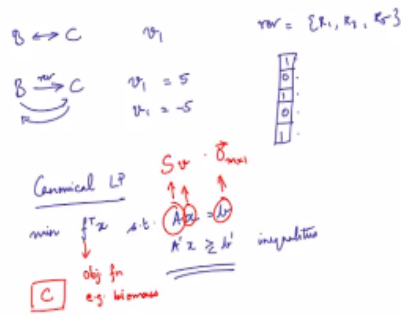 B ↔ C v₁ rev = {R₁, R₃, R₅}
B rev → C v₁ = 5
v₁ = -5
1
0
1
0
1
S v . 0⃗ₘₓ₁
Canonical LP
min fᵀx s.t. A x = b
A' x ≥ b' inequalities
obj fn
e.g. biomass
C